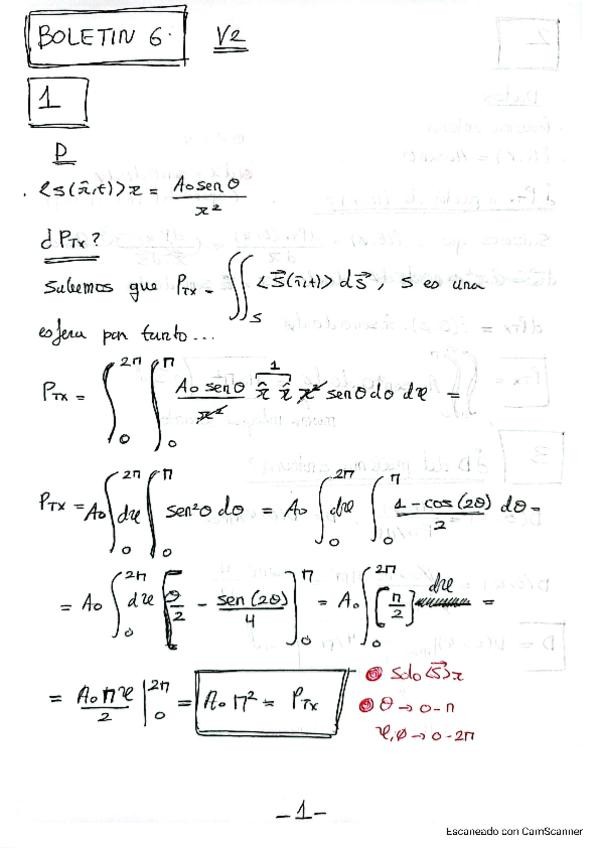 BOLETIN 6. V2
1
D
. <s(r̂,t)>r = A₀ sen θ / r²
¿P_Tx?
Sabemos que P_Tx = ∬_S <S⃗(r̄,t)> dS⃗, S es una
esfera por tanto...
P_Tx = ∫₀^{2π} ∫₀^π (A₀ sen θ / r²) r̂ r̂ (1) r² sen θ dθ dφ =
P_Tx = A₀ ∫₀^{2π} dφ ∫₀^π sen²θ dθ = A₀ ∫₀^{2π} dφ ∫₀^π (1 - cos (2θ))/2 dθ =
= A₀ ∫₀^{2π} dφ [θ/2 - sen (2θ)/4]₀^π = A₀ ∫₀^{2π} [π/2] dφ =
= A₀ π φ / 2 |₀^{2π} = A₀ π² = P_Tx
Solo <S⃗>r
θ → 0 - π
φ, ϕ → 0 - 2π
- 1 -
Escaneado con CamScanner